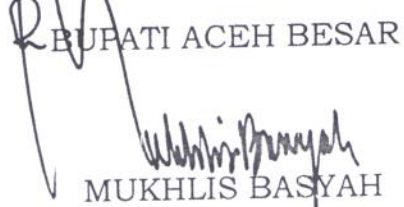 BUPATI ACEH BESAR
MUKHLIS BASYAH